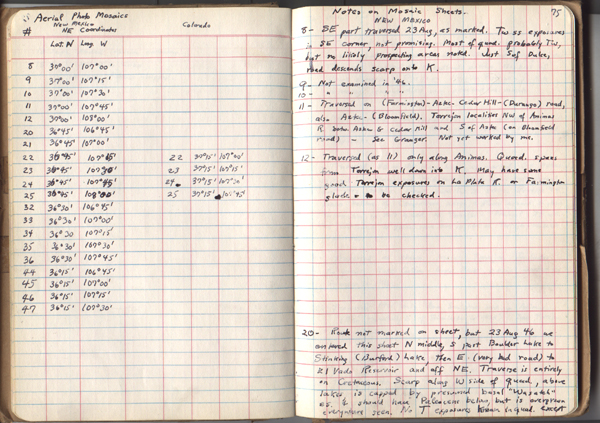 Aerial Photo Mosaics
New Mexico Colorado
# NE Coordinates
Lat. N Long. W
8 37°00' 107°00'
9 37°00' 107°15'
10 37°00' 107°30'
11 37°00' 107°45'
12 37°00' 108°00'
20 36°45' 106°45'
21 36°45' 107°00'
22 36°45' 107°15' 22 37°15' 107°00'
23 36°45' 107°30' 23 37°15' 107°15'
24 36°45' 107°45' 24 37°15' 107°30'
25 36°45' 108°00' 25 37°15' 107°45'
32 36°30' 106°45'
33 36°30' 107°00'
34 36°30 107°15'
35 36°30' 107°30'
36 36°30' 107°45'
44 36°15' 106°45'
45 36°15' 107°00'
46 36°15' 107°15'
47 36°15' 107°30'
Notes on Mosaic Sheets. 75
NEW MEXICO
8- SE part traversed 23 Aug, as marked. Tw ss exposures
in SE corner, not promising. Most of quad. probably Tw,
but no likely prospecting areas noted. Just S of Dulce,
road descends scarp onto K.
9- Not examined in '46.
10- " " " "
11- Traversed on (Farmington)-Aztec-Cedar Hill-(Durango) road,
also Aztec-(Bloomfield). Torrejon localities NW of Animas
R. betw. Aztec & Cedar Hill and S of Aztec (on Bloomfield
road) - See Granger. Not yet worked by me.
12- Traversed (as 11) only along Animas. Quad. spans
from Torrejon well down into K. May have some
good Torrejon exposures on La Plata R. or Farmington
glade - to be checked.
20- Route not marked on sheet, but 23 Aug 46 we
entered this sheet N middle, S past Boulder Lake to
Stinking (Burford) Lake, then E (very bad road) to
El Vado Reservoir and off NE. Traverse is entirely
on Cretaceous. Scarp along W side of quad, above
lakes is capped by presumed basal "Wasatch"
ss. & should have Paleocene below, but is overgrown
everywhere seen. No T exposures known in quad. except